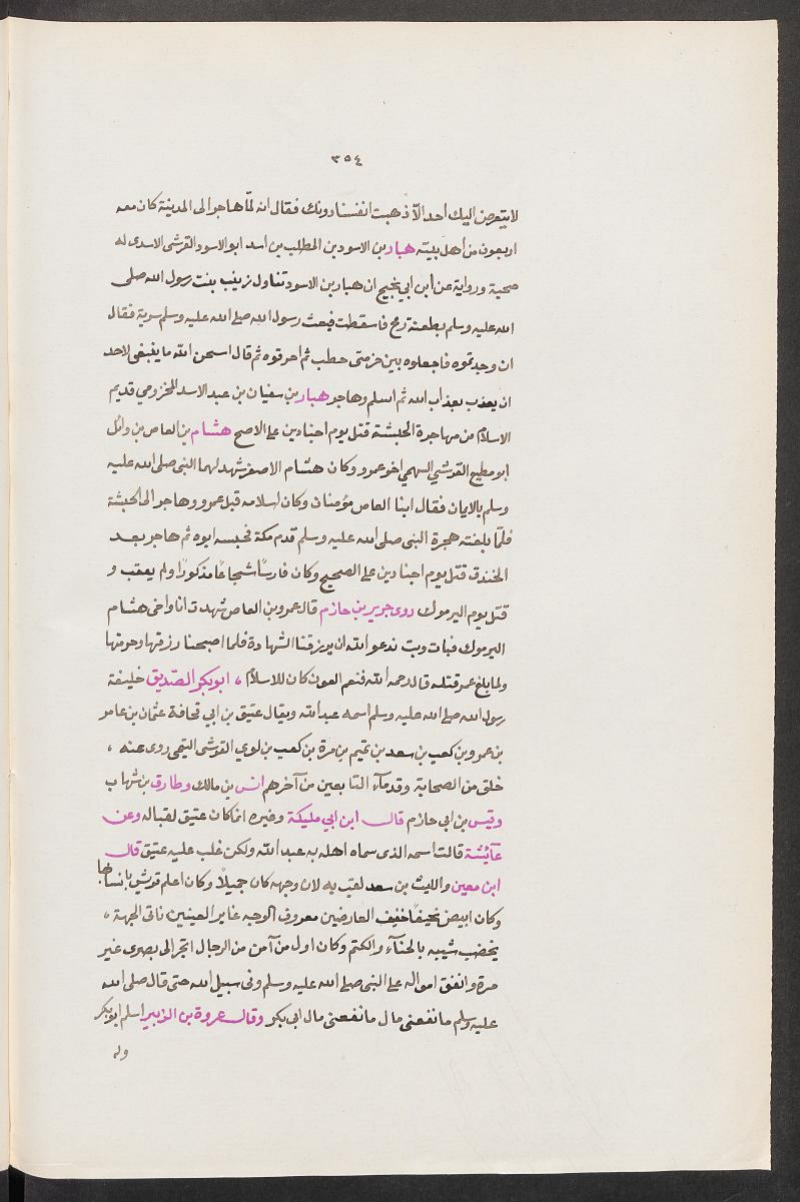 ٣٥٤
لا يتعرض اليك احد الا ذهبت انفسنا دونك فقال انه لمّا هاجر الى المدينة كان معه
اربعون من أهل بيته هبار بن الاسود بن المطلب بن اسد ابو الاسود القرشى الاسدى له
صحبة ورواية عن أبن ابي نجيح ان هبار بن الاسود تناول زينب بنت رسول الله صلى
الله عليه وسلم بطعنة رمح فاسقطت فبعث رسول الله صلى الله عليه وسلم سرية فقال
ان وجدتموه فاجعلوه بين حزمتى حطب ثم احرقوه ثم قال اسحن الله ما ينبغى لاحد
ان يعذب بعذاب الله ثم اسلم وهاجر هبار بن سفيان بن عبد الاسد المخزومي قديم
الاسلام من مهاجرة الحبشة قتل يوم اجنادين على الاصح هشام بن العاص بن وائل
ابو مطيع القرشي السهمي اخو عمرو وكان هشام الاصغر شهد لهما النبى صلى الله عليه
وسلم بالايمان فقال ابنا العاص مؤمنان وكان اسلامه قبل عمرو وهاجر الى الحبشة
فلمّا بلغته هجرة النبى صلى الله عليه وسلم قدم مكة فحبسه ابوه ثم هاجر بعد
الخندق قتل يوم اجنادين على الصحيح وكان فارسًا شجاعًا مذكورًا ولم يعقب و
قتل يوم اليرموك روى جرير بن حازم قال عمرو بن العاص شهدت انا واخى هشام
اليرموك فبات وبت ندعو الله ان يرزقنا الشهادة فلما اصبحنا رزقها وحرمتها
ولما بلغ عمر قتله قال رحمه الله فنعم العون كان للاسلام ، ابو بكر الصّديق خليفة
رسول الله صلى الله عليه وسلم اسمه عبد الله ويقال عتيق بن ابي قحافة عثمان بن عامر
بن عمرو بن كعب بن سعد بن تيم بن مرة بن كعب بن لوي القرشى التيمى روى عنه ،
خلق من الصحابة وقدمآء التابعين من آخرهم انس بن مالك وطارق بن شهاب
وقيس بن ابي حازم قال ابن ابي مليكة وغيره انما كان عتيق لقبا له وعن
عآئشة قالت اسمه الذى سماه اهله به عبد الله ولكن غلب عليه عتيق قال
ابن معين والليث بن سعد لقب به لان وجهه كان جميلاً وكان اعلم قريش بانسابها
وكان ابيض نحيفًا خفيف العارضين معروق الوجه غاير العينين ناتى الجبهة ،
يخضب شيبه بالحنآء والكتم وكان اول من آمن من الرجال اتجر الى بصرى غير
مرة وانفق امواله على النبى صلى الله عليه وسلم وفى سبيل الله حتى قال صلى الله
عليه وسلم ما نفعنى مال ما نفعنى مال ابى بكر وقال عروة بن الزبير اسلم ابو بكر
وله